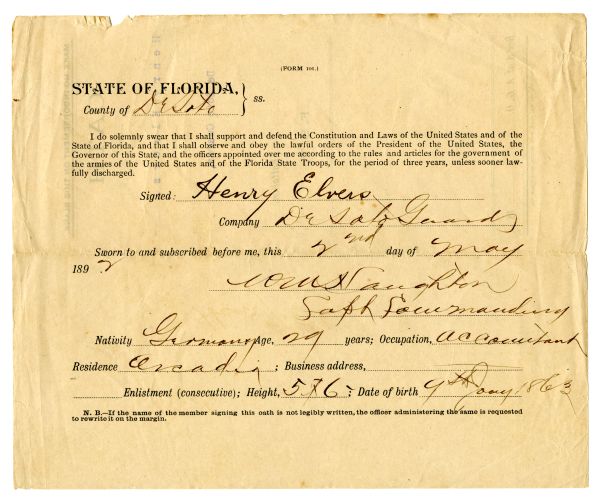 (FORM 101.)
STATE OF FLORIDA, } ss.
County of De Soto
I do solemnly swear that I shall support and defend the Constitution and Laws of the United States and of the
State of Florida, and that I shall observe and obey the lawful orders of the President of the United States, the
Governor of this State, and the officers appointed over me according to the rules and articles for the government of
the armies of the United States and of the Florida State Troops, for the period of three years, unless sooner law-
fully discharged.
Signed: Henry Elvers
Company De Soto Guards
Sworn to and subscribed before me, this 2nd day of May
1892
Capt Commanding
Nativity Germany Age, 29 years; Occupation, accountant
Residence Arcadia ; Business address,
Enlistment (consecutive); Height, 5 + 6 ; Date of birth 9th 1863
N. B.—If the name of the member signing this oath is not legibly written, the officer administering the same is requested
to rewrite it on the margin.